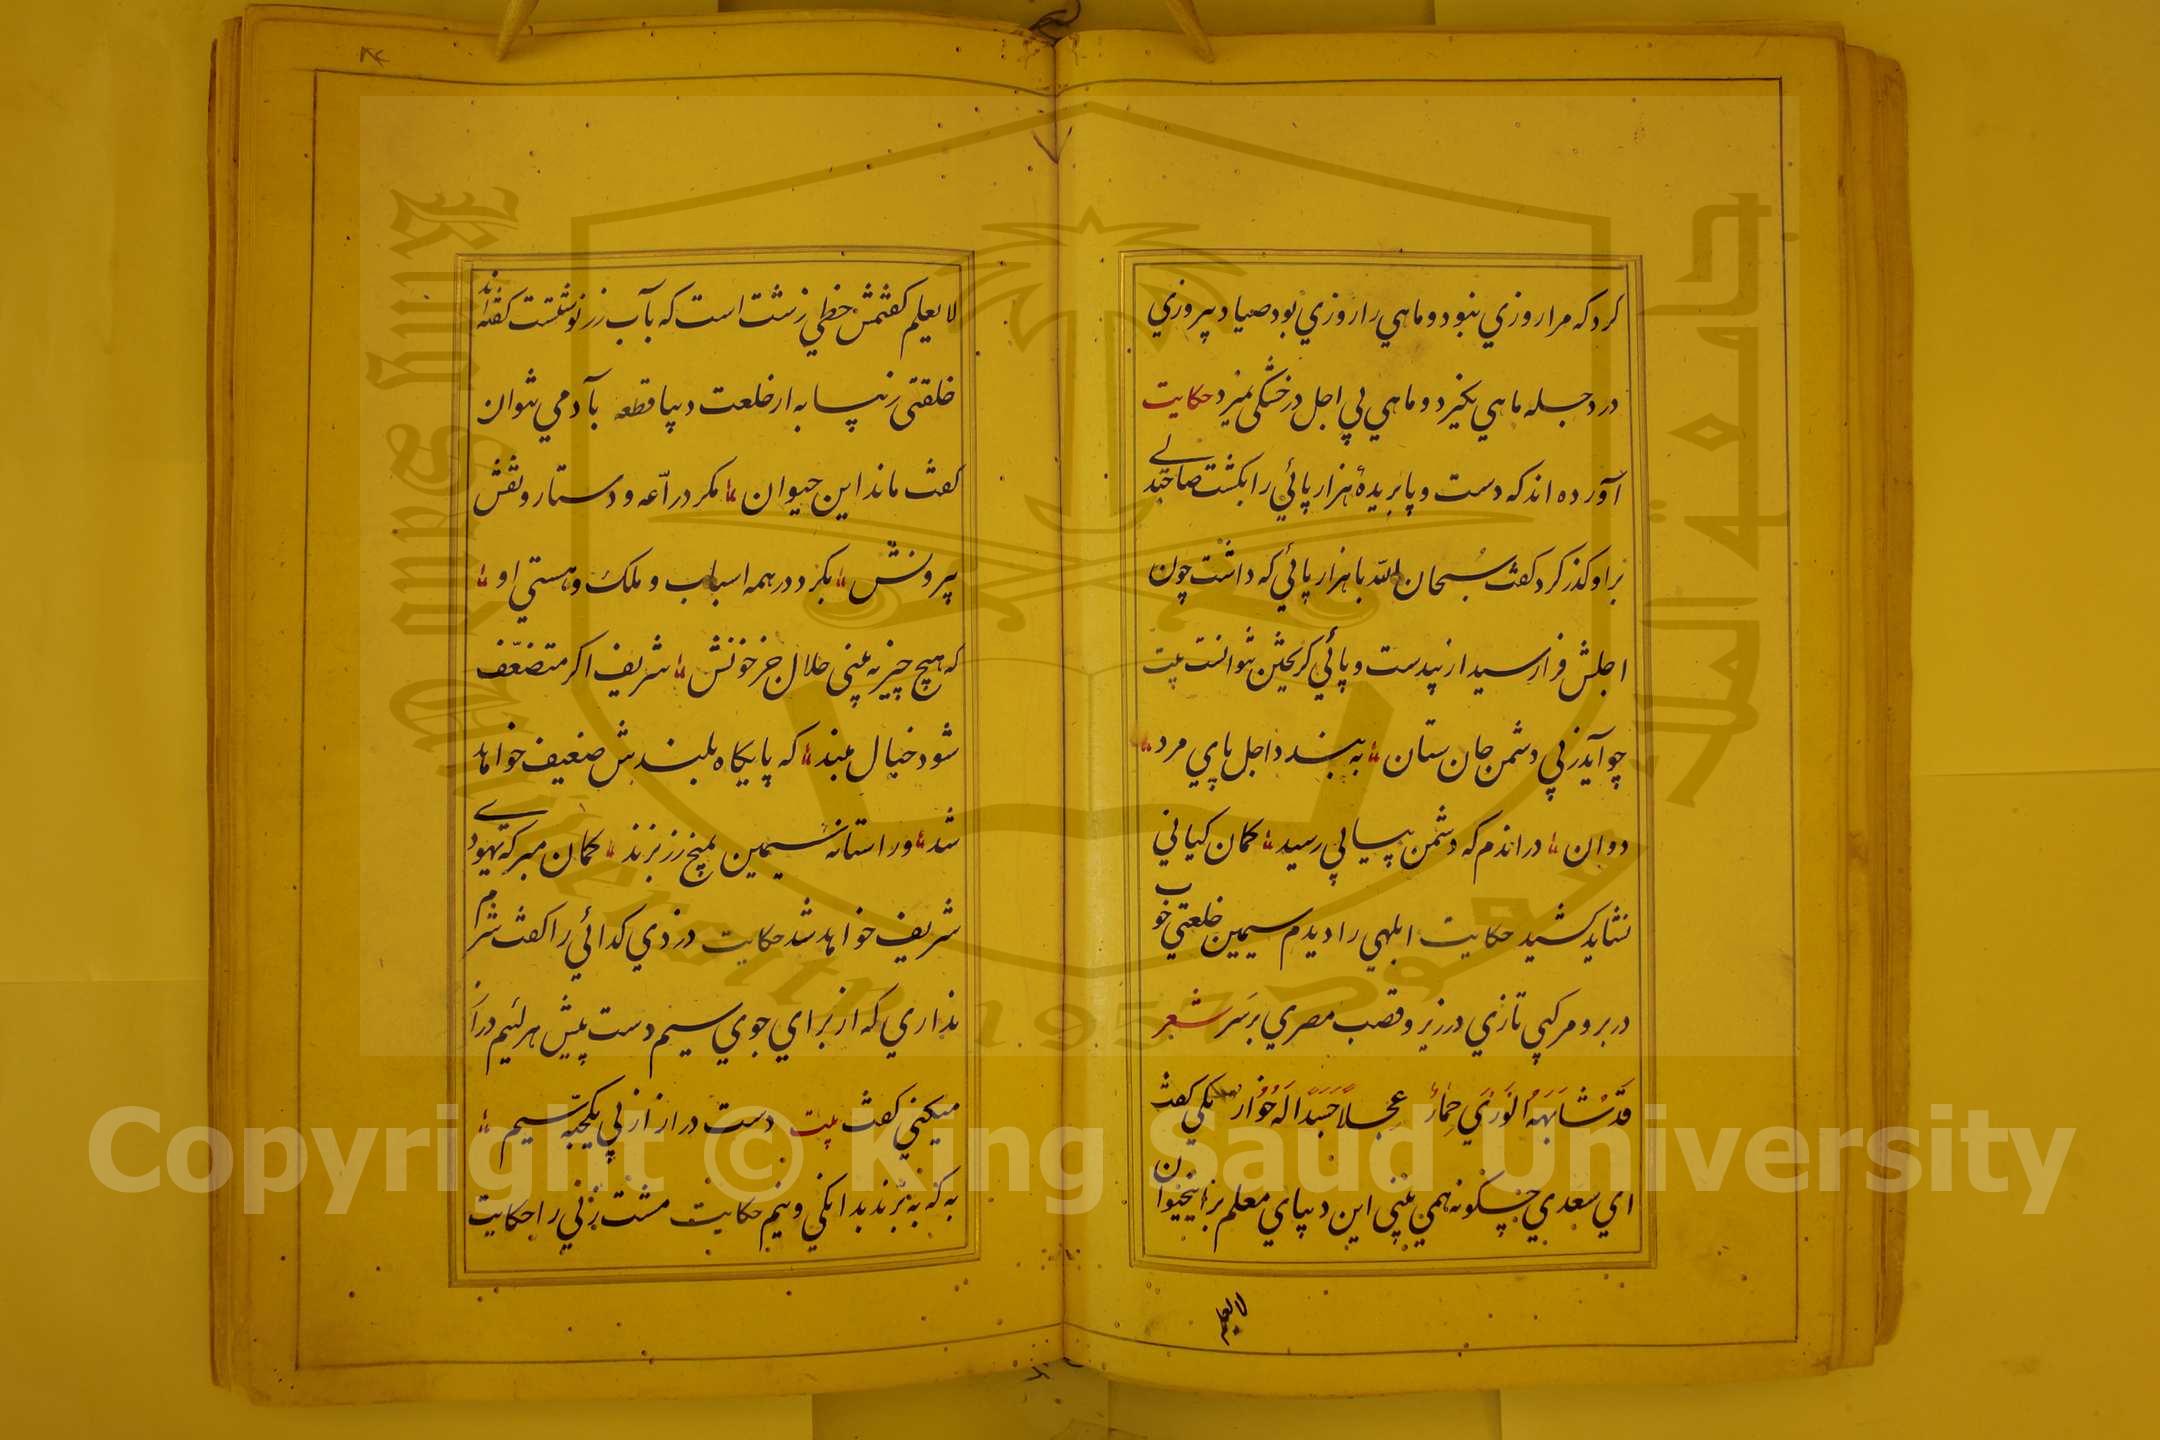 کرد که مرا روزي نبود و ماهي را روزي بود صیاد پیروزي
در دجله ماهي نکیرد و ماهي بي اجل در خشکی نمیرد حکایت
آورده اند که دست و پا بریدهٔ هزار پائي را بکشت صاحبدلے
بر او کذر کرد کفت سُبحان الله با هزار پائي که داشت چون
اجلش فراز رسید از بیدست و پائي کریختن نتوانست بیت
چو آید ز پي دشمن جان ستان به بندد اجل پاي مرد
دوان در اندم که دشمن پیاپي رسید کمان کیاني
نشاید کشید حکایت ابلهي را دیدم سیمین خلعتي خوب
در بر و مرکبي تازي در زیر و قصب مصري بر سَر شعر
قَدْ شَابَهَهُ الوَرَیٰ حِمَارٌ عِجلاً جَسَدًا لَهُ خُوَارٌ یکي کفت
اي سعدي چکونه همي بیني این دیباي معلم بر اینحیوان
لا یعلم
لا یعلم کفتمش خطي زشت است که بآب زر نوشتست کفته اند
خلقتی زیبا به از خلعت دیبا قطعه بآدمي نتوان
کفت ماند این حیوان مکر درّاعه و دستار و نقش
بیرونش بکرد در همه اسباب و ملك و هستي او
که هیچ چیز نه بیني حلال جز خونش شریف اکر متضعّف
شود خیال مبند که پایکاه بلندش ضعیف خواهد
شد ور استانه سیمین بمیخ زر بزند کمان مبر که یهودے
شریف خواهد شد حکایت دزدي کدائي را کفت شرم
نداري که از براي جوي سیم دست پیش هر لئیم دراز
میکني کفت بیت دست دراز از پي یکحبّه سیم
به که به بُرند بدانکي و نیم حکایت مشت زني را حکایت
King Saud University
جامعة الملك سعود
1957
Copyright © King Saud University